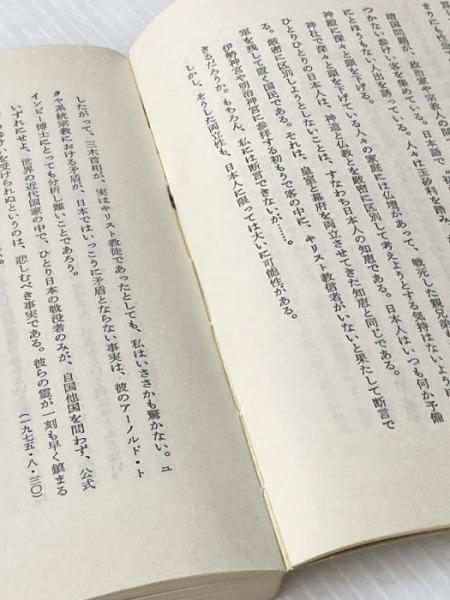 靖国問題が、政治家や宗教人の間
まりにも性急
つかない参けい客を集めている。日本語で
にとほうもない人出を誘っている。人々は玉砂利を踏み、
神殿に深々と頭を下げる。
神社で深々と頭を下げている人々の家庭には仏壇があって、戦死した親兄弟も
ひとりひとりの日本人は、神道と仏教とを厳密に区別して考えようとする気持はないよう
る。厳密に区別しようとしないことは、すなわち日本人の知恵である。日本人はいつも何か予備
軍を残して置く国民である。それは、皇室と幕府を両立させてきた知恵と同じである。
伊勢神宮や明治神宮に参拝する初もうで客の中に、キリスト教信者がいないと果たして断言で
きるだろうか。もちろん、私には断言できないが……。
しかし、そうした両立性も、日本人に限っては大いに可能性がある。
したがって、三木首相が、実はキリスト教徒であったとしても、私はいささかも驚かない。ユ
タヤ系統宗教における矛盾が、日本ではいっこうに矛盾とならない事実は、彼のアーノルド・ト
インビー博士にとっても分析し難いことであろう。
いずれにせよ、世界の近代国家の中で、ひとり日本の戦役者のみが、自国他国を問わず、公式
けいを受けられぬというのは、悲しむべき事実である。彼らの霊が一刻も早く鎮まる
(一九七五・八・三〇)